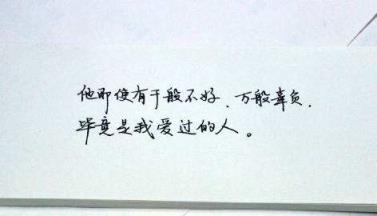 他即使有千般不好、万般辜负、
毕竟是我爱过的人。